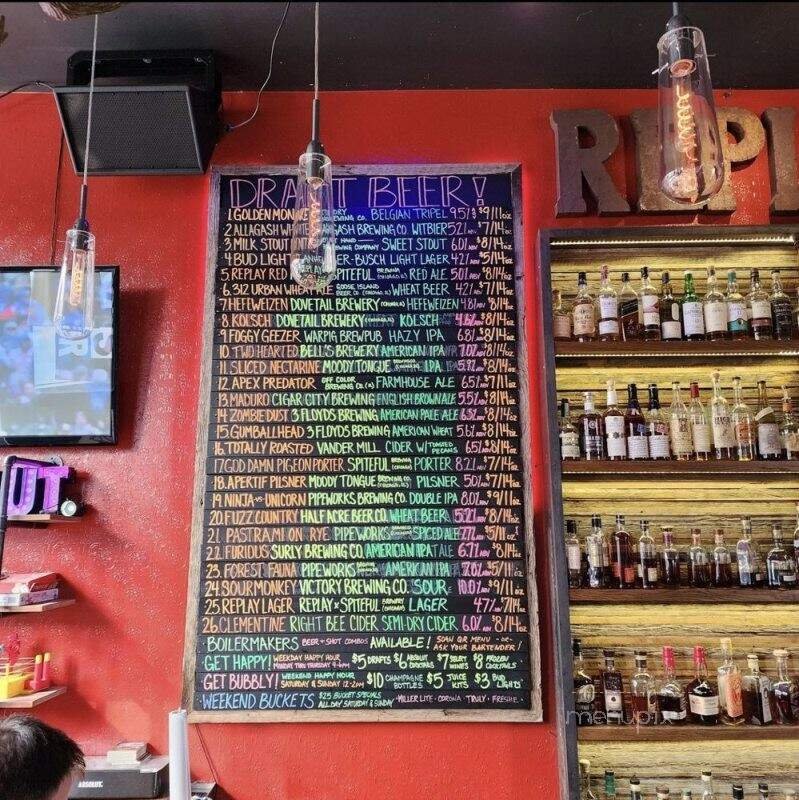 DRAFT BEER!
1. GOLDEN MONKEY BELGIAN TRIPEL 9.5% $9/11oz
2. ALLAGASH WHITE ALLAGASH BREWING CO. WITBIER 5.2% $7/14oz
3. MILK STOUT HAND BREWING COMPANY SWEET STOUT 6.0% $8/14oz
4. BUD LIGHT ANHEUSER-BUSCH LIGHT LAGER 4.2% $5/14oz
5. REPLAY RED SPITEFUL BREWING (CHICAGO, IL) RED ALE 5.0% $8/14oz
6. 312 URBAN WHEAT ALE GOOSE ISLAND BEER CO. (CHICAGO, IL) WHEAT BEER 4.2% $7/14oz
7. HEFEWEIZEN DOVETAIL BREWERY (CHICAGO, IL) HEFEWEIZEN 4.8% $8/14oz
8. KÖLSCH DOVETAIL BREWERY KÖLSCH 4.6% $8/14oz
9. FOGGY GEEZER WARPIG BREWPUB HAZY IPA 6.8% $8/14oz
10. TWO HEARTED BELL'S BREWERY AMERICAN IPA 7.0% $8/14oz
11. SLICED NECTARINE MOODY TONGUE IPA 5.9% $8/14oz
12. APEX PREDATOR OFF COLOR BREWING CO. FARMHOUSE ALE 6.5% $7/11oz
13. MADURO CIGAR CITY BREWING ENGLISH BROWN ALE 5.5% $8/14oz
14. ZOMBIE DUST 3 FLOYDS BREWING AMERICAN PALE ALE $8/14oz
15. GUMBALLHEAD 3 FLOYDS BREWING AMERICAN WHEAT 5.6% $8/14oz
16. TOTALLY ROASTED VANDER MILL CIDER W/ TOASTED PECANS 6.5% $8/14oz
17. GOD DAMN PIGEON PORTER SPITEFUL BREWING PORTER 8.2% $7/14oz
18. APERTIF PILSNER MOODY TONGUE PILSNER 5.0% $7/14oz
19. NINJA VS. UNICORN PIPEWORKS BREWING CO. DOUBLE IPA 8.0% $9/11oz
20. FUZZ COUNTRY HALF ACRE BEER CO. WHEAT BEER $8/14oz
21. PASTRAMI ON RYE PIPEWORKS SPICED ALE $5/11oz
22. FURIOUS SURLY BREWING CO. AMERICAN IPA 6.7% $8/14oz
23. FOREST FAUNA PIPEWORKS AMERICAN IPA 7.0% $5/11oz
24. SOUR MONKEY VICTORY BREWING CO. SOUR 10.0% $9/11oz
25. REPLAY LAGER REPLAY × SPITEFUL BREWERY LAGER 4.7% $7/14oz
26. CLEMENTINE RIGHT BEE CIDER SEMI-DRY CIDER 6.0% $8/14oz
BOILERMAKERS BEER + SHOT COMBOS AVAILABLE! SCAN QR MENU -OR- ASK YOUR BARTENDER!
GET HAPPY! WEEKDAY HAPPY HOUR MONDAY THRU THURSDAY $5 DRAFTS $6 ABSOLUT COCKTAILS $7 SELECT WINES $8 FROZEN COCKTAILS
GET BUBBLY! WEEKEND HAPPY HOUR SATURDAY & SUNDAY 12-2PM $10 CHAMPAGNE BOTTLES $5 JUICE KITS $3 BUD LIGHTS
WEEKEND BUCKETS $25 BUCKET SPECIALS ALL DAY SATURDAY & SUNDAY · MILLER LITE · CORONA · TRULY ·
REPL
UT
ABSOLUT.
menupix
REPLAY